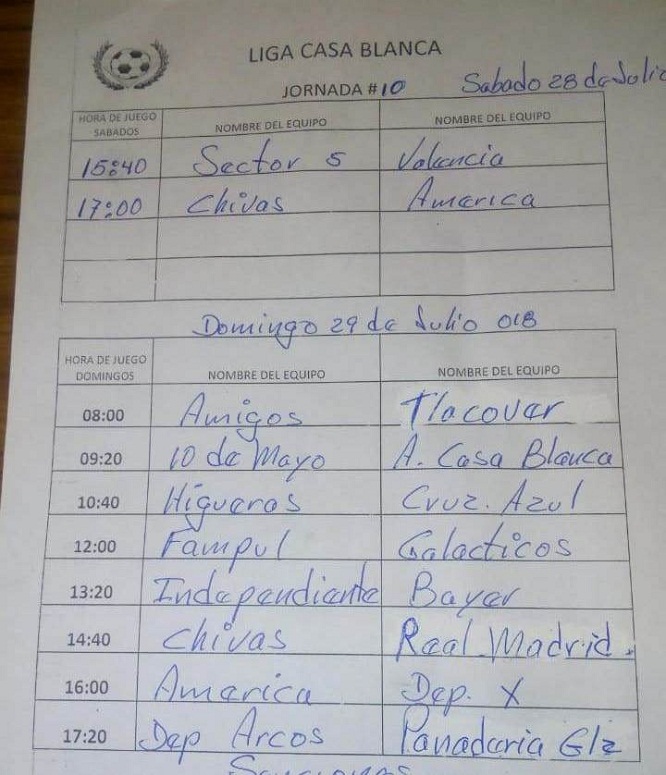 LIGA CASA BLANCA
JORNADA #10 Sabado 28 de Julio
HORA DE JUEGO SABADOS NOMBRE DEL EQUIPO NOMBRE DEL EQUIPO
15:40 Sector 5 Valencia
17:00 Chivas America
Domingo 29 de Julio 018
HORA DE JUEGO DOMINGOS NOMBRE DEL EQUIPO NOMBRE DEL EQUIPO
08:00 Amigos Tlacovar
09:20 10 de Mayo A. Casa Blanca
10:40 Higueras Cruz. Azul
12:00 Fampul Galacticos
13:20 Independiente Bayer
14:40 Chivas Real Madrid.
16:00 America Dep. X
17:20 Dep Arcos Panaderia Glz